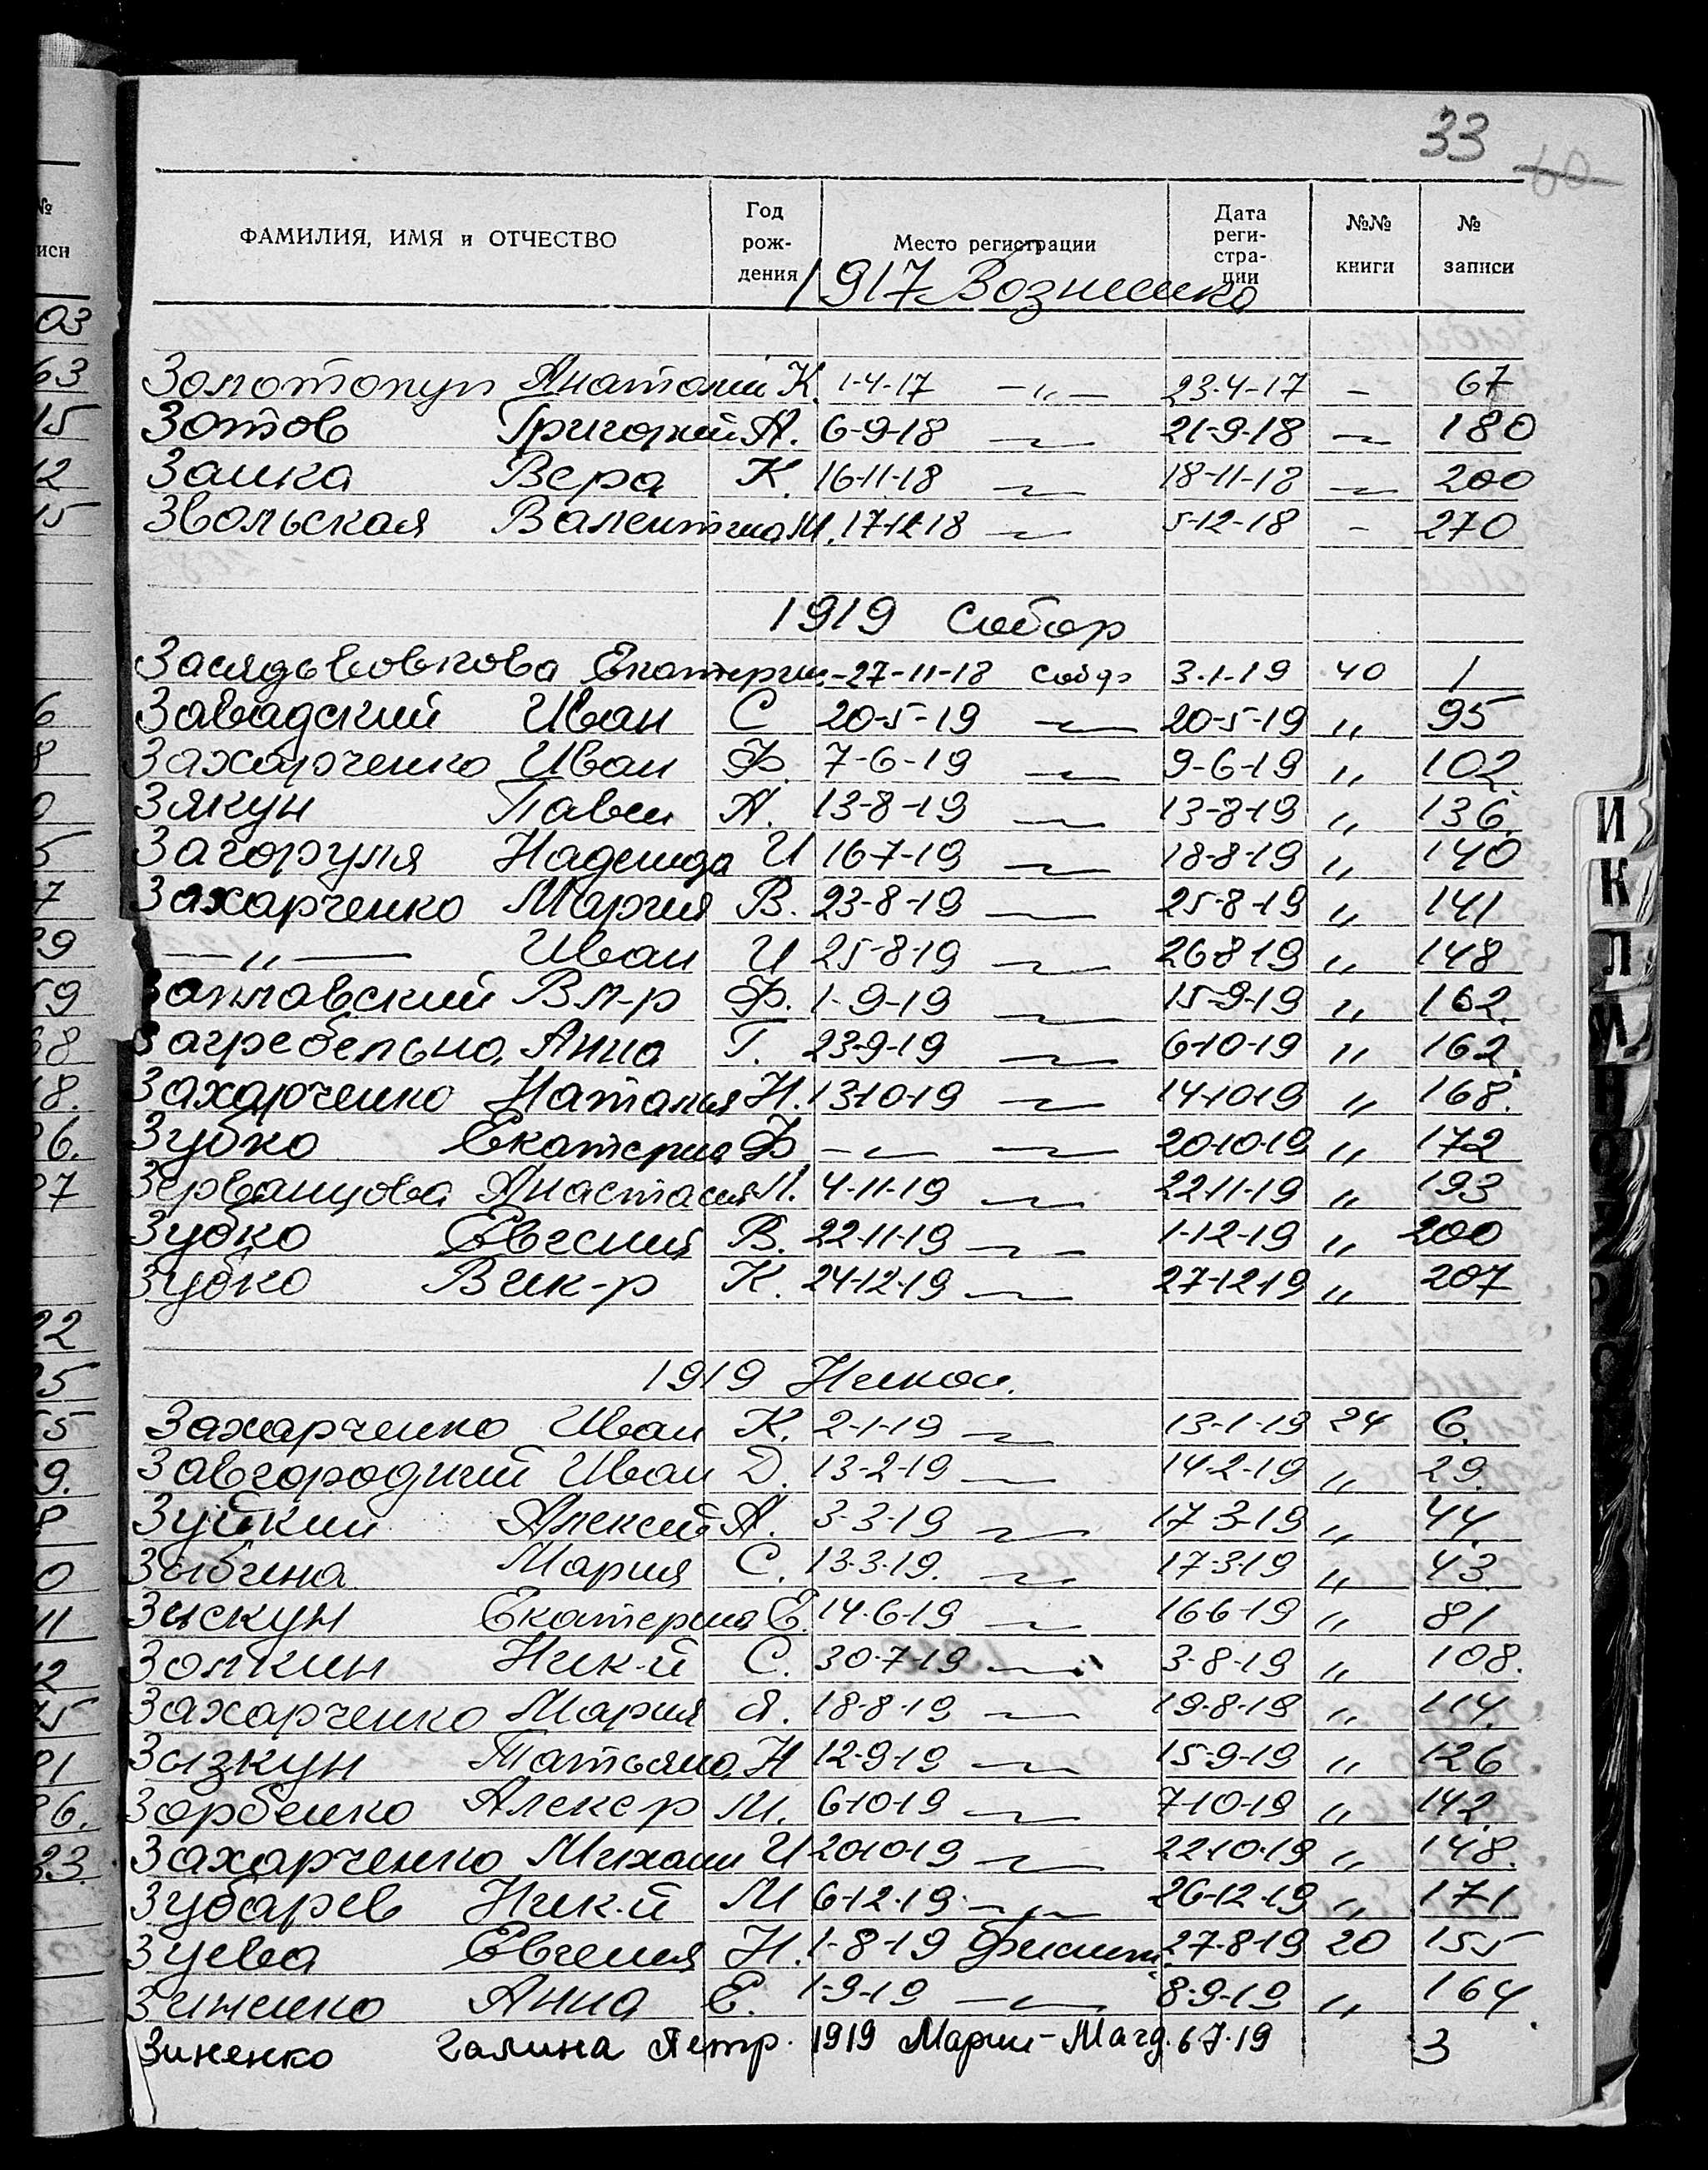 33 60
ФАМИЛИЯ, ИМЯ и ОТЧЕСТВО Год рож- дения Место регистрации Дата реги- стра- ции №№ книги № записи
1917 Вознесенко
Золотопуп Анатолий К. 1-4-17 -〃- 23-4-17 - 67
Зотов Григорий А. 6-9-18 — 21-9-18 — 180
Заика Вера К. 16-11-18 — 18-11-18 — 200
Звольская Валентина М. 17-12-18 — 5-12-18 - 270
1919 Собор
Екатерин -27-11-18 Собор 3-1-19 40 1
Завадский Иван С 20-5-19 — 20-5-19 〃 95
Захарченко Иван Ф. 7-6-19 — 9-6-19 〃 102
Зякун Павел А. 13-8-19 — 13-8-19 〃 136
Загоруля Надежда И 16-7-19 — 18-8-19 〃 140
Захарченко Мария В. 23-8-19 — 25-8-19 〃 141
—〃— Иван И 25-8-19 — 26-8-19 〃 148
Заплавский Вл-р Ф. 1-9-19 — 15-9-19 〃 162
Загребельна Анна Г. 23-9-19 — 6-10-19 〃 162
Захарченко Наталья Н. 13-10-19 — 14-10-19 〃 168.
Зубко Екатерина Ф — — 20-10-19 〃 172
Зерванцова Анастасия 4-11-19 — 22-11-19 〃 193
Зубко Евгения В. 22-11-19 — 1-12-19 〃 200
Зубко Вик-р К. 24-12-19 — 27-12-19 〃 207
1919 Никол.
Захарченко Иван К. 2-1-19 — 13-1-19 24 6.
Завгородний Иван Д. 13-2-19 — 14-2-19 〃 29.
Зуйкин Алексей А. 3-3-19 — 17-3-19 〃 44.
Зыбина Мария С. 13-3-19. — 17-3-19 〃 43
Зыскун Екатерина Е. 14-6-19 — 16-6-19 〃 81
Золкин Ник-й С. 30-7-19 — 3-8-19 〃 108.
Захарченко Мария Я. 18-8-19 — 19-8-19 〃 114.
Зызкун Татьяна Н 12-9-19 — 15-9-19 〃 126
Зорбенко Алекс-р М. 6-10-19 — 7-10-19 〃 142
Захарченко Михаил И 20-10-19 — 22-10-19 〃 148.
Зубарев Ник-й М 6-12-19 — 26-12-19 〃 171
Зуева Евгения Н. 1-8-19 27-8-19 20 155
Зиненко Анна Е. 1-9-19 — 8-9-19 〃 164.
Зиненко Галина Петр. 1919 Марии-Магд. 6-7-19 3
И
К
Л
М